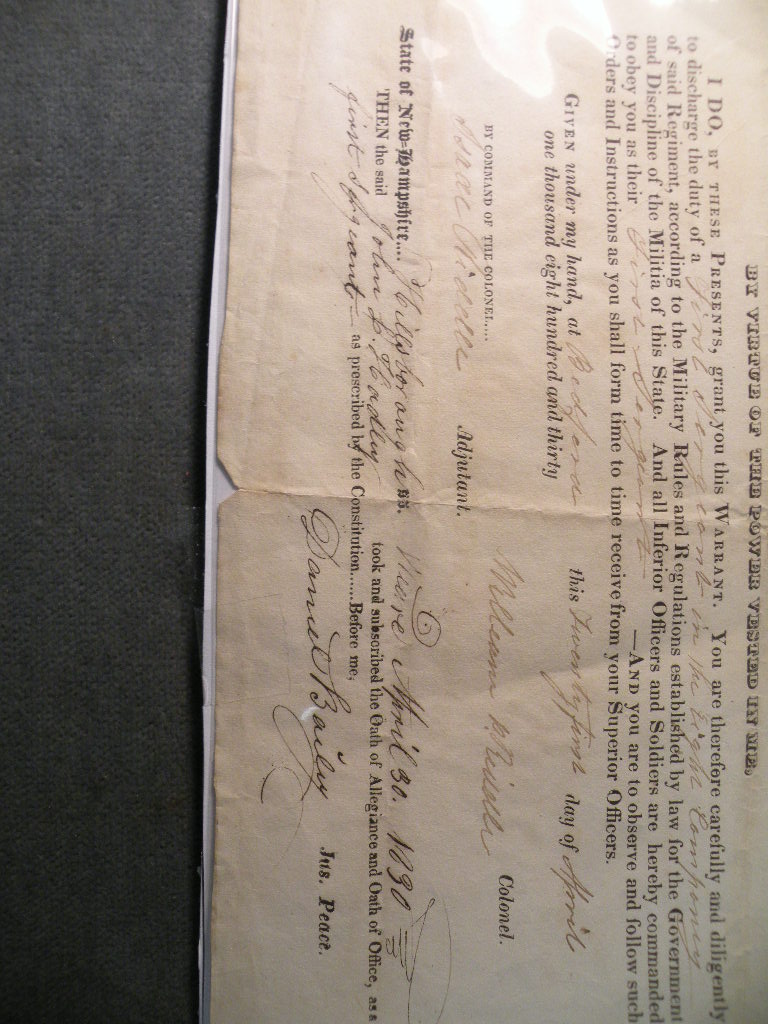 BY VIRTUE OF THE POWER VESTED IN ME,
I DO, BY THESE PRESENTS, grant you this WARRANT. You are therefore carefully and diligently
to discharge the duty of a first Sergeant in the Eight Company
of said Regiment, according to the Military Rules and Regulations established by law for the Government
and Discipline of the Militia of this State. And all Inferior Officers and Soldiers are hereby commanded
to obey you as their first Sergeant —AND you are to observe and follow such
Orders and Instructions as you shall form time to time receive from your Superior Officers.
GIVEN under my hand, at Bedford this twenty first day of April
one thousand eight hundred and thirty
William Riddle Colonel.
BY COMMAND OF THE COLONEL....
Isaac Riddle Adjutant.
State of New-Hampshire.... Hillsborough ss. Weare April 30. 1830
THEN the said John L. Hadley took and subscribed the Oath of Allegiance and Oath of Office, as a
first Sergeant — as prescribed by the Constitution......Before me,
Daniel Bailey Jus. Peace.